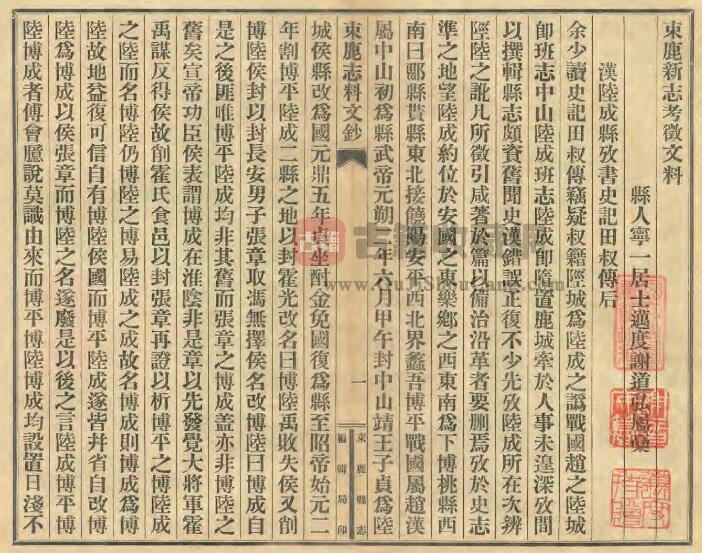 束鹿新志考徵文料
縣人寧一居士邁度謝道弘屬稾
漢陸成縣攷書史記田叔傳后
余少讀史記田叔傳竊疑叔籍陘城爲陸成之譌戰國趙之陸城
卽班志中山陸成班志陸成卽隋置鹿城牽於人事未遑深攷間
以撰輯縣志頗資舊聞史漢錯誤正復不少先攷陸成所在次辨
陘陸之訛凡所徵引咸著於篇以備治沿革者要刪焉攷於史志
準之地望陸成約位於安國之東樂鄉之西東南爲下博桃縣西
南曰鄡縣貰縣東北接饒陽安平西北界蠡吾博平戰國屬趙漢
屬中山初爲縣武帝元朔二年六月甲午封中山靖王子貞爲陸
束鹿志料文鈔
一
束鹿縣志
編輯局印
城侯縣改爲國元鼎五年貞坐酎金免國復爲縣至昭帝始元二
年割博平陸成二縣之地以封霍光改名曰博陸禹敗失侯又削
博陸侯封以封長安男子張章取馮無擇侯名改博陸曰博成自
是之後匪唯博平陸成均非其舊而張章之博成蓋亦非博陸之
舊矣宣帝功臣侯表謂博成在淮陰非是章以先發覺大將軍霍
禹謀反得侯故削霍氏食邑以封張章再證以析博平之博陸成
之陸而名博陸仍博陸之博易陸成之成故名博成則博成爲博
陸故地益復可信自有博陸侯國而博平陸成遂皆幷省自改博
陸爲博成以侯張章而博陸之名遂廢是以後之言陸成博平博
陸博成者傅會臆說莫識由來而博平博陸博成均設置日淺不
古籍